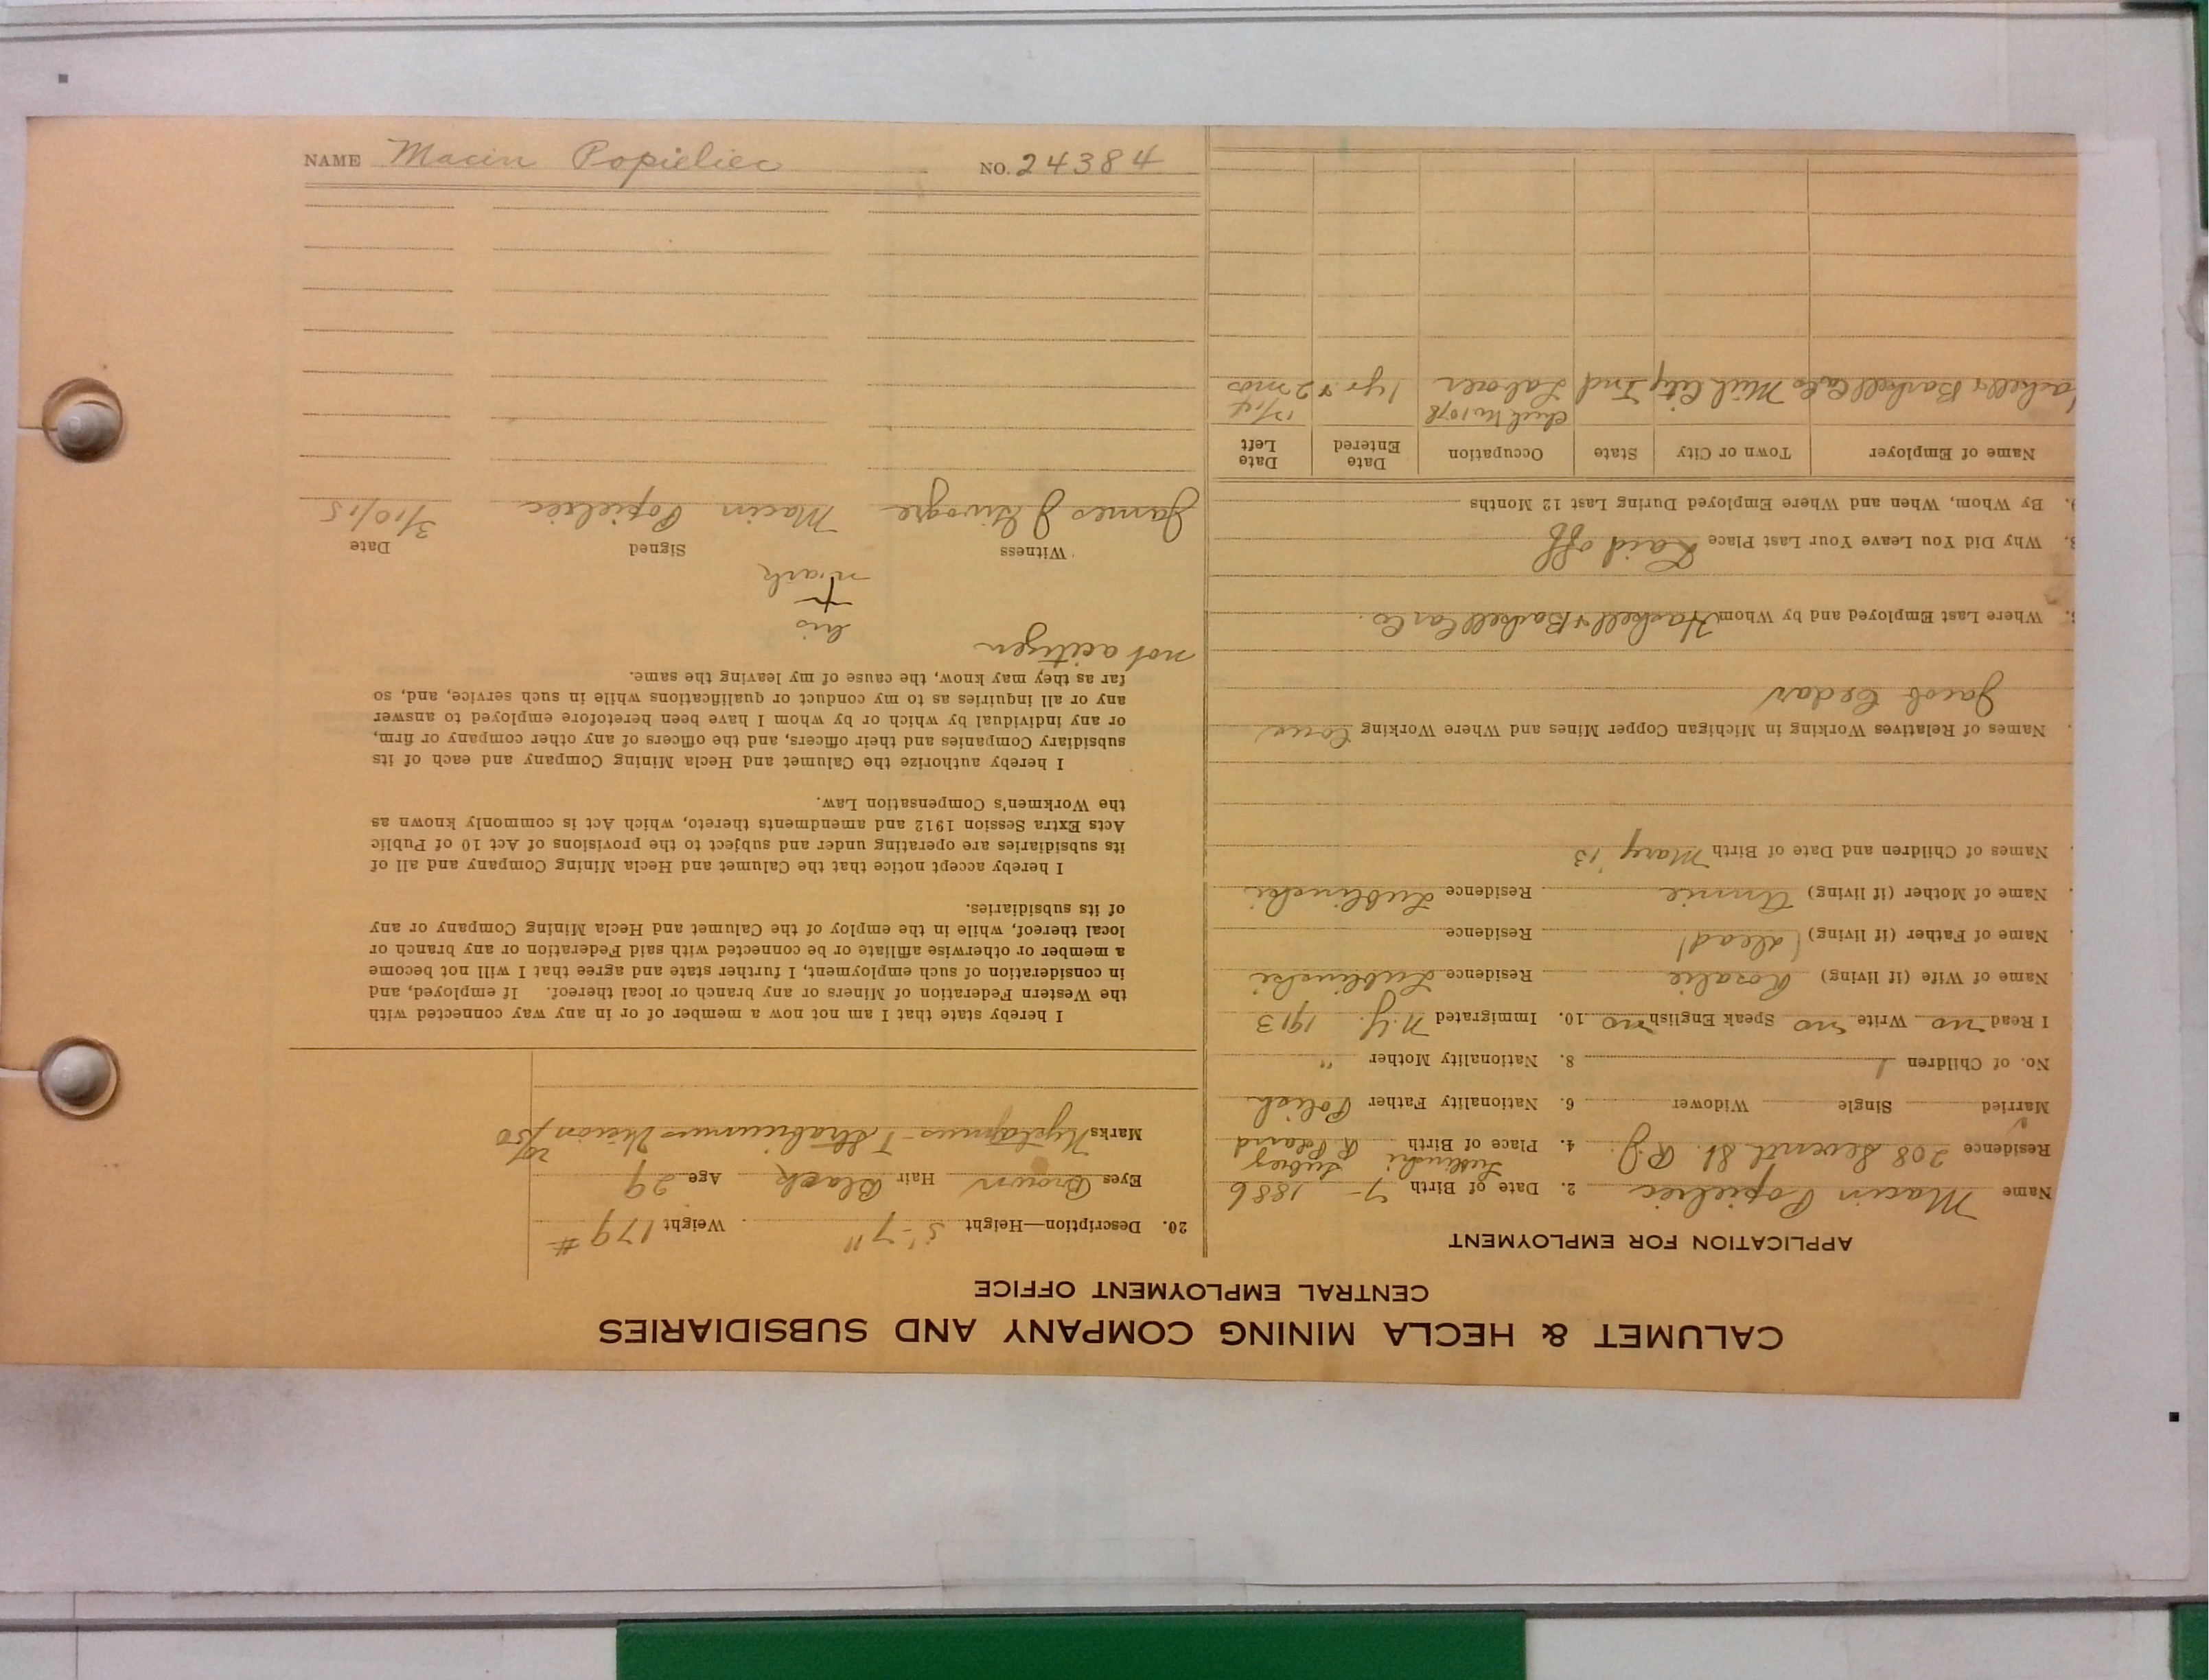 CALUMET & HECLA MINING COMPANY AND SUBSIDIARIES
CENTRAL EMPLOYMENT OFFICE
APPLICATION FOR EMPLOYMENT
Name Macin Popieliec 2. Date of Birth 7- 1886
Residence 208 Seventh St. R.J. 4. Place of Birth Lublinski R Poland
Married Single Widower 6. Nationality Father Polish
No. of Children 1 8. Nationality Mother "
I Read no Write no Speak English no 10. Immigrated N.Y. 1913
Name of Wife (if living) Rosalie Residence Lublinski
Name of Father (if living) (dead) Residence
Name of Mother (if living) Annie Residence Lublinski
Names of Children and Date of Birth Mary '13
Names of Relatives Working in Michigan Copper Mines and Where Working
Jacob Cedar
Where Last Employed and by Whom Haskell & Barkell Car Co.
Why Did You Leave Your Last Place Laid off
9. By Whom, When and Where Employed During Last 12 Months
Name of Employer Town or City State Occupation Date Entered Date Left
Check No 1078 12/14
Haskell & Barkell Car Co Mich City Ind Laborer 1 yr & 2 mos
20. Description—Height 5'-7" Weight 179 #
Eyes Brown Hair Black Age 29
Marks Strabismus Vision 20/50
I hereby state that I am not now a member of or in any way connected with
the Western Federation of Miners or any branch or local thereof. If employed, and
in consideration of such employment, I further state and agree that I will not become
a member or otherwise affiliate or be connected with said Federation or any branch or
local thereof, while in the employ of the Calumet and Hecla Mining Company or any
of its subsidiaries.
I hereby accept notice that the Calumet and Hecla Mining Company and all of
its subsidiaries are operating under and subject to the provisions of Act 10 of Public
Acts Extra Session 1912 and amendments thereto, which Act is commonly known as
the Workmen's Compensation Law.
I hereby authorize the Calumet and Hecla Mining Company and each of its
subsidiary Companies and their officers, and the officers of any other company or firm,
or any individual by which or by whom I have been heretofore employed to answer
any or all inquiries as to my conduct or qualifications while in such service, and, so
far as they may know, the cause of my leaving the same.
not a citizen
his
+
mark
Witness Signed Date
James J Macin Popieliec 3/10/15
NAME Macin Popieliec NO. 24384